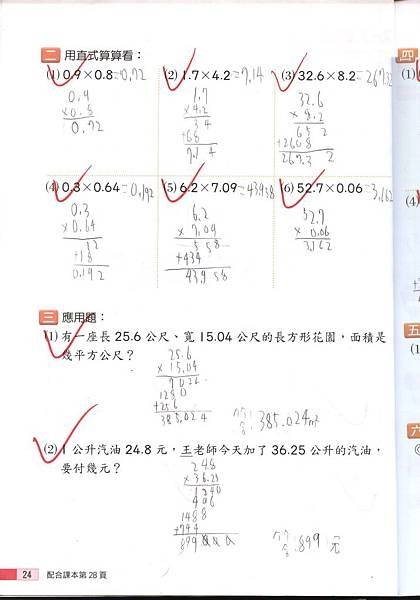 二 用直式算算看：
(1) 0.9×0.8=0.72 (2) 1.7×4.2=7.14 (3) 32.6×8.2=267.32
0.9 1.7 32.6
×0.8 ×4.2 ×8.2
0.72 34 652
+68 +2608
7.14 267.3 2
(4) 0.3×0.64=0.192 (5) 6.2×7.09=43.958 (6) 52.7×0.06=3.162
0.3 6.2 52.7
×0.64 ×7.09 ×0.06
12 558 3.162
+18 +434
0.192 43.958
三 應用題：
(1) 有一座長 25.6 公尺、寬 15.04 公尺的長方形花園，面積是
幾平方公尺？
25.6
×15.04
1280
+256
385.024
385.024m²
(2) 1 公升汽油 24.8 元，王老師今天加了 36.25 公升的汽油，
要付幾元？
248
×36.25
1240
496
1488
+744
899
899 元
24 配合課本第 28 頁
四
(1)
(4)
五
(1
六